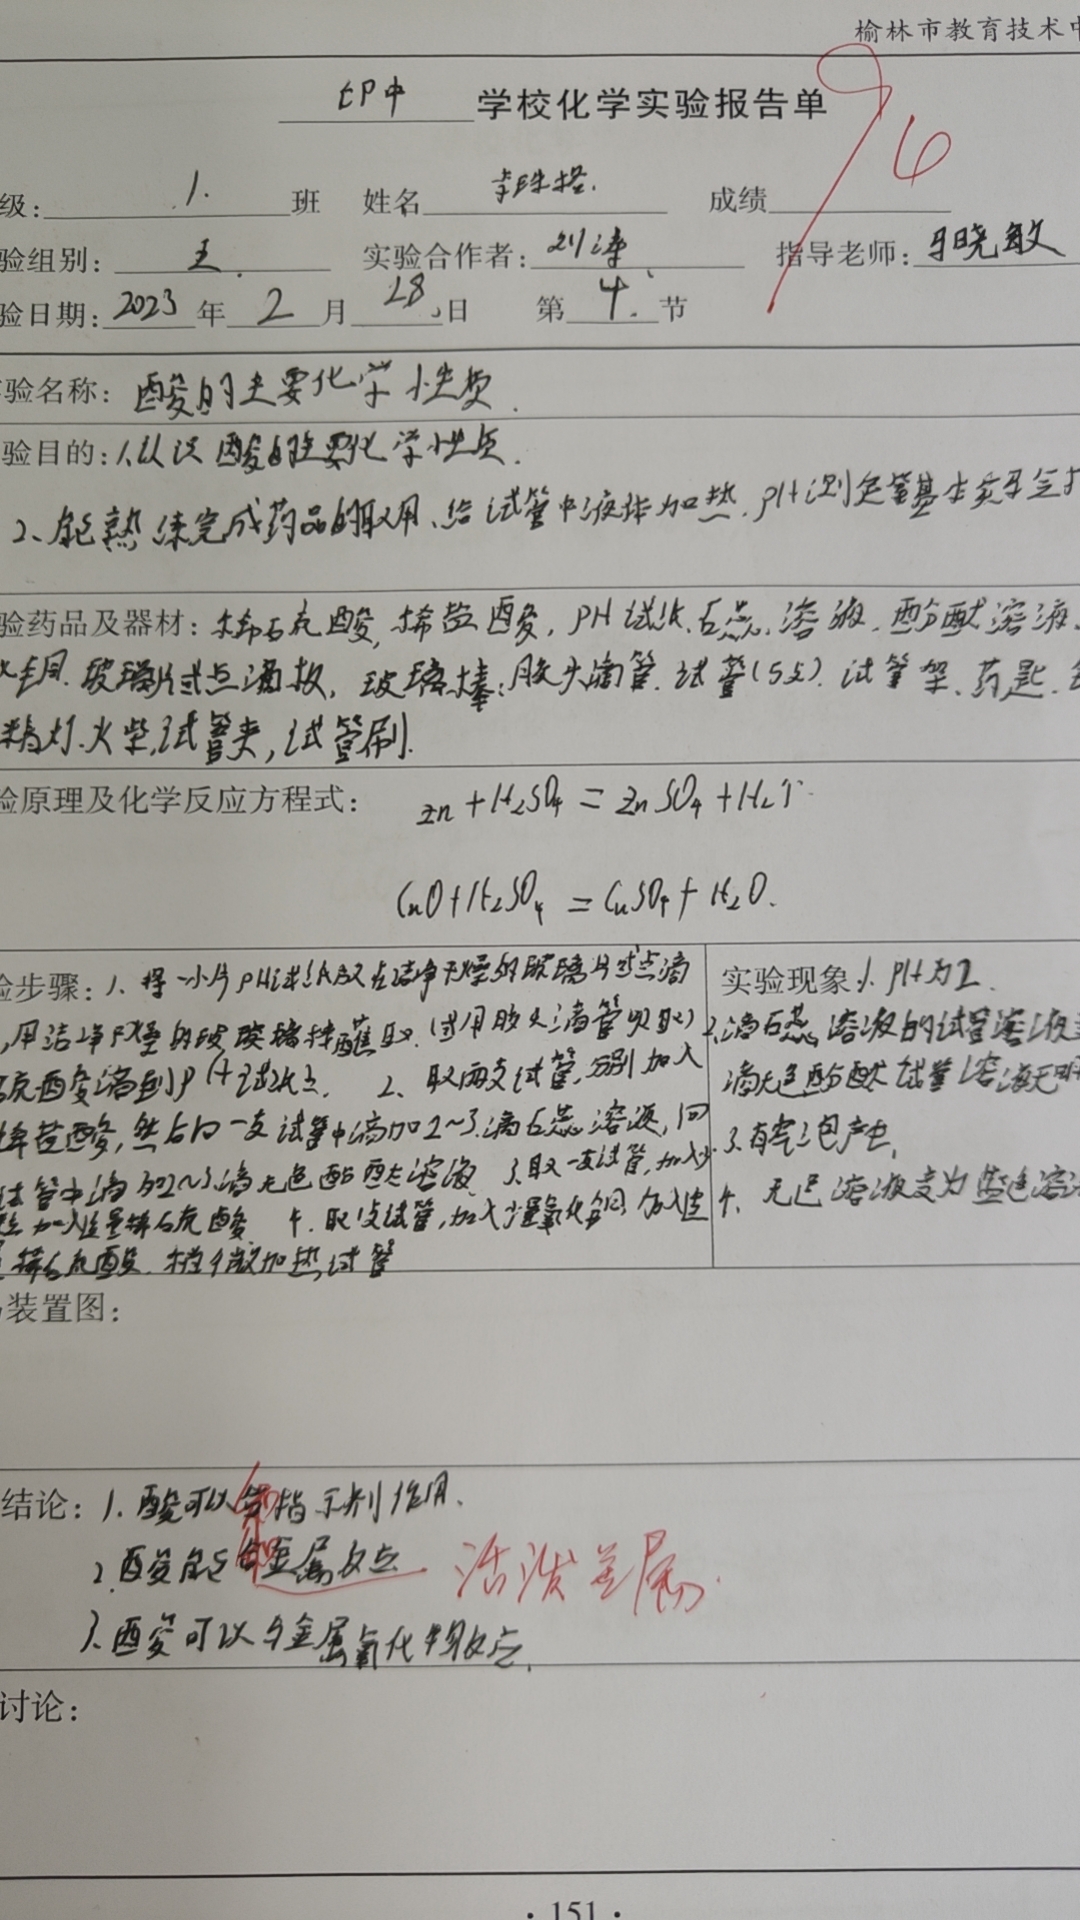 榆林市教育技术中
学校化学实验报告单
96
级: 1. 班 姓名 成绩
验组别: 实验合作者: 刘涛 指导老师: 晓敏
验日期: 2023 年 2 月 28 日 第 4. 节
验名称: 酸的主要化学性质.
验目的: 1.认识酸的主要化学性质.
2、能熟练完成药品的取用、给试管中液体加热.pH测定等基本实
验药品及器材: 稀硫酸,稀盐酸,PH试纸、石蕊、溶液、酚酞溶液、
玻璃片或点滴板,玻璃棒;胶头滴管.试管(5支).试管架、药匙、
精灯.火柴,试管夹,试管刷.
验原理及化学反应方程式: Zn+H₂SO₄=ZnSO₄+H₂↑
CuO+H₂SO₄=CuSO₄+H₂O.
验步骤: 1、将一小片PH试纸放在洁净干燥的玻璃片或点滴
,用洁净干燥的玻璃棒蘸取.(或用胶头滴管吸取)
硫酸滴到PH试纸上. 2、取两支试管,分别加入
稀盐酸,然后向一支试管中滴加2~3滴石蕊溶液,向
试管中滴加2~3滴无色酚酞溶液 3.取一支试管,加入少
加入适量稀硫酸 4.取一支试管,加入少量氧化铜,加入适
稀硫酸.稍微加热试管
实验现象:1.PH为2.
2.滴石蕊溶液的试管溶液
滴无色酚酞试管溶液无明
3.有气泡产生,
4.无色溶液变为蓝色溶
装置图:
结论: 1.酸可以与指示剂作用.
2.酸能与金属反应 活泼金属.
3.酸可以与金属氧化物反应.
讨论:
·151·